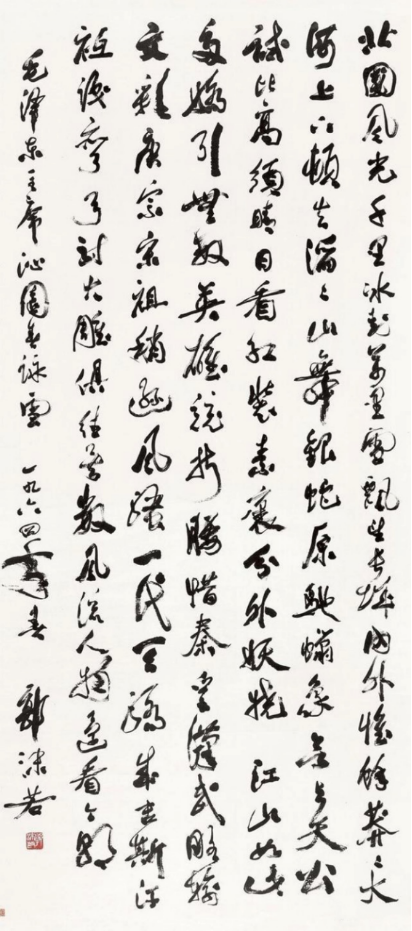 北國風光千里冰封萬里雪飄望長城內外惟餘莽〻大
河上下頓失滔〻山舞銀蛇原馳蠟象欲與天公
試比高須晴日看紅裝素裹分外妖嬈 江山如此
多嬌引無數英雄競折腰惜秦皇漢武略輸
文彩唐宗宋祖稍遜風騷一代天驕成吉斯汗
祇識彎弓射大雕俱往矣數風流人物還看今朝
毛澤東主席沁園春詠雪 一九六四年春 郭沫若